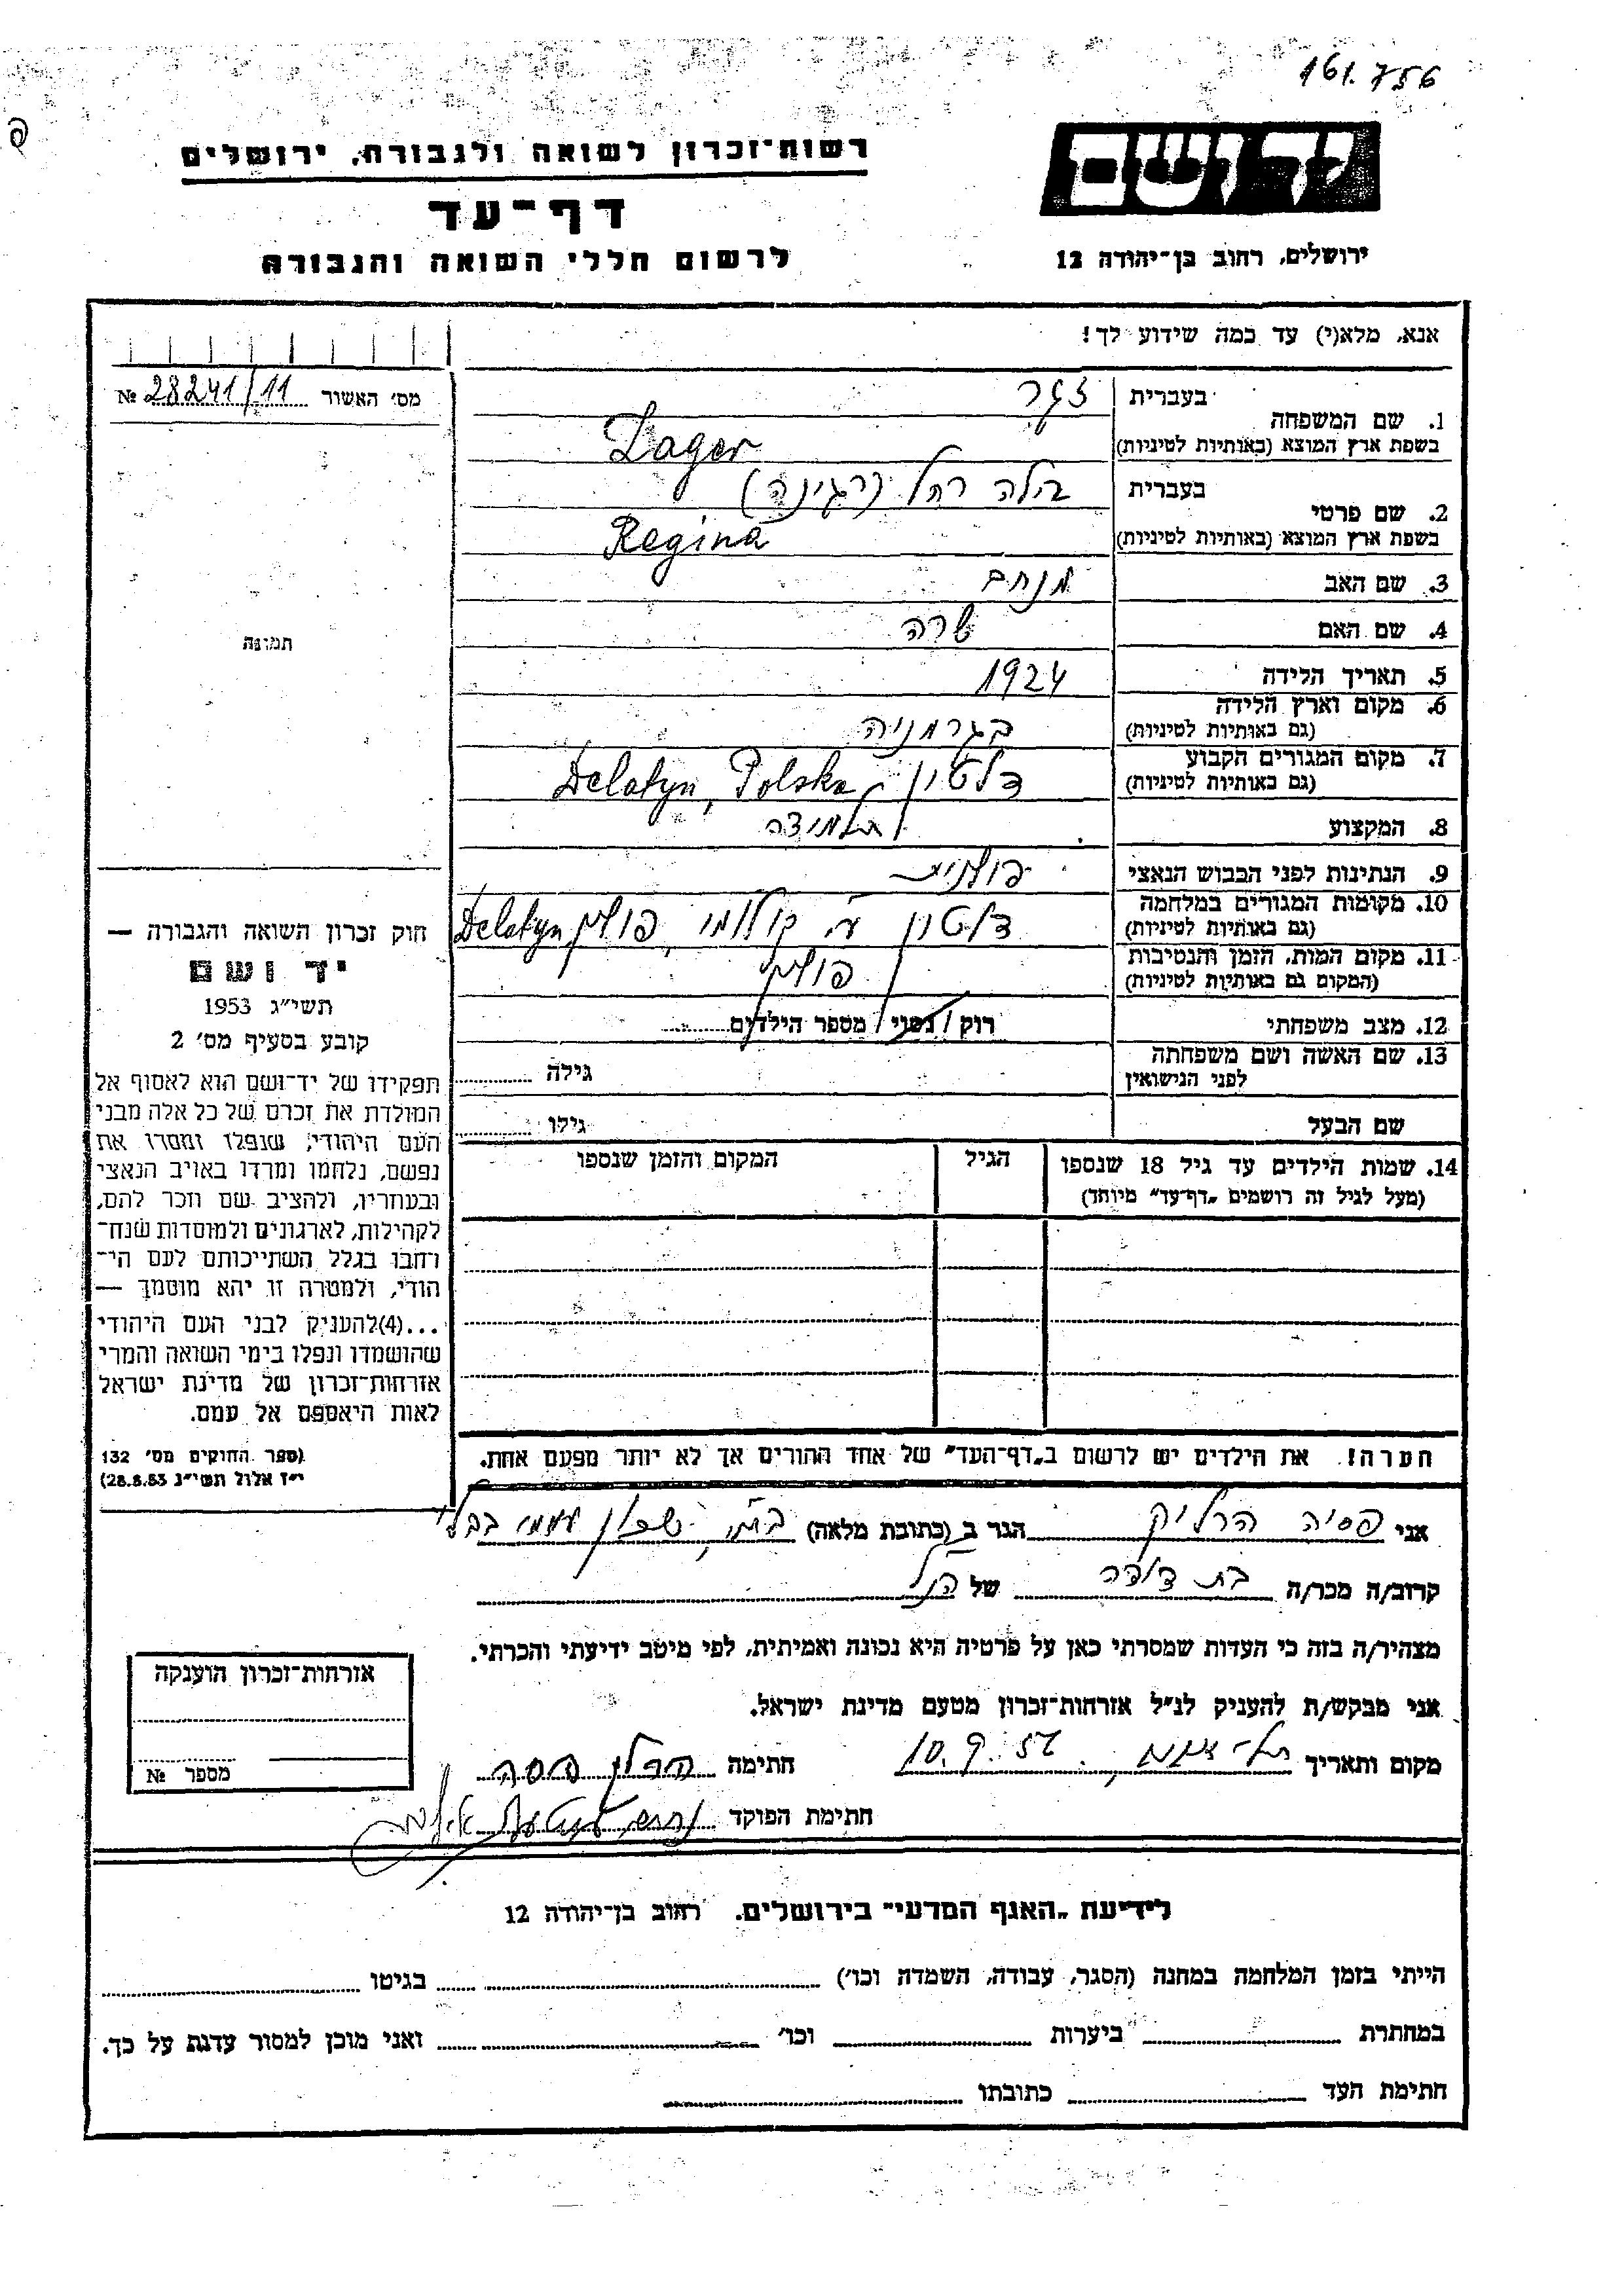 161.756
יד ושם
רשות-זכרון לשואה ולגבורה, ירושלים
דף-עד
ירושלים, רחוב בן-יהודה 12
לרשום חללי השואה והגבורה
אנא, מלא(י) עד כמה שידוע לך!
מס׳ האשור 28241/11 №
1. שם המשפחה
בעברית
בשפת ארץ המוצא (באותיות לטיניות) Zager
2. שם פרטי
בעברית בילה רחל (רגינה)
בשפת ארץ המוצא (באותיות לטיניות) Regina
3. שם האב מנחם
4. שם האם שרה
תמונה
5. תאריך הלידה 1924
6. מקום וארץ הלידה
(גם באותיות לטיניות) בגרמניה
7. מקום המגורים הקבוע
(גם באותיות לטיניות) דלטין Delatyn, Polska
8. המקצוע תלמידה
9. הנתינות לפני הכבוש הנאצי פולנית
10. מקומות המגורים במלחמה
(גם באותיות לטיניות) דלטין ע״י קולומי, פולין Delatyn
11. מקום המות, הזמן והנסיבות
(המקום גם באותיות לטיניות) פולין
12. מצב משפחתי רוק / נשוי / מספר הילדים
13. שם האשה ושם משפחתה
לפני הנישואין גילה
שם הבעל גילו
14. שמות הילדים עד גיל 18 שנספו
(מעל לגיל זה רושמים „דף-עד״ מיוחד)
הגיל
המקום והזמן שנספו
הערה! את הילדים יש לרשום ב„דף-העד״ של אחד ההורים אך לא יותר מפעם אחת.
חוק זכרון השואה והגבורה —
יד ושם
תשי״ג 1953
קובע בסעיף מס׳ 2
תפקידו של יד-ושם הוא לאסוף אל
המולדת את זכרם של כל אלה מבני
העם היהודי, שנפלו ומסרו את
נפשם, נלחמו ומרדו באויב הנאצי
ובעוזריו, ולהציב שם וזכר להם,
לקהילות, לארגונים ולמוסדות שנח-
רחבו בגלל השתייכותם לעם הי-
הודי, ולמטרה זו יהא מוסמך —
...(4)להעניק לבני העם היהודי
שהושמדו ונפלו בימי השואה והמרי
אזרחות-זכרון של מדינת ישראל
לאות היאספם אל עמם.
(ספר החוקים מס׳ 132
י״ז אלול תשי״ג 28.8.53)
אני פסיה הרליק הגר ב (כתובת מלאה) שכון עממי
קרוב/ה מכר/ה בת דודה של הנ״ל
מצהיר/ה בזה כי העדות שמסרתי כאן על פרטיה היא נכונה ואמיתית, לפי מיטב ידיעתי והכרתי.
אני מבקש/ת להעניק לנ״ל אזרחות-זכרון מטעם מדינת ישראל.
מקום ותאריך 10.9.56 חתימה
חתימת הפוקד
אזרחות-זכרון הוענקה
מספר №
לידיעת „האגף המדעי״ בירושלים, רחוב בן-יהודה 12
הייתי בזמן המלחמה במחנה (הסגר, עבודה, השמדה וכו׳) בגיטו
במחתרת ביערות וכו׳ ואני מוכן למסור עדות על כך.
חתימת העד כתובתו